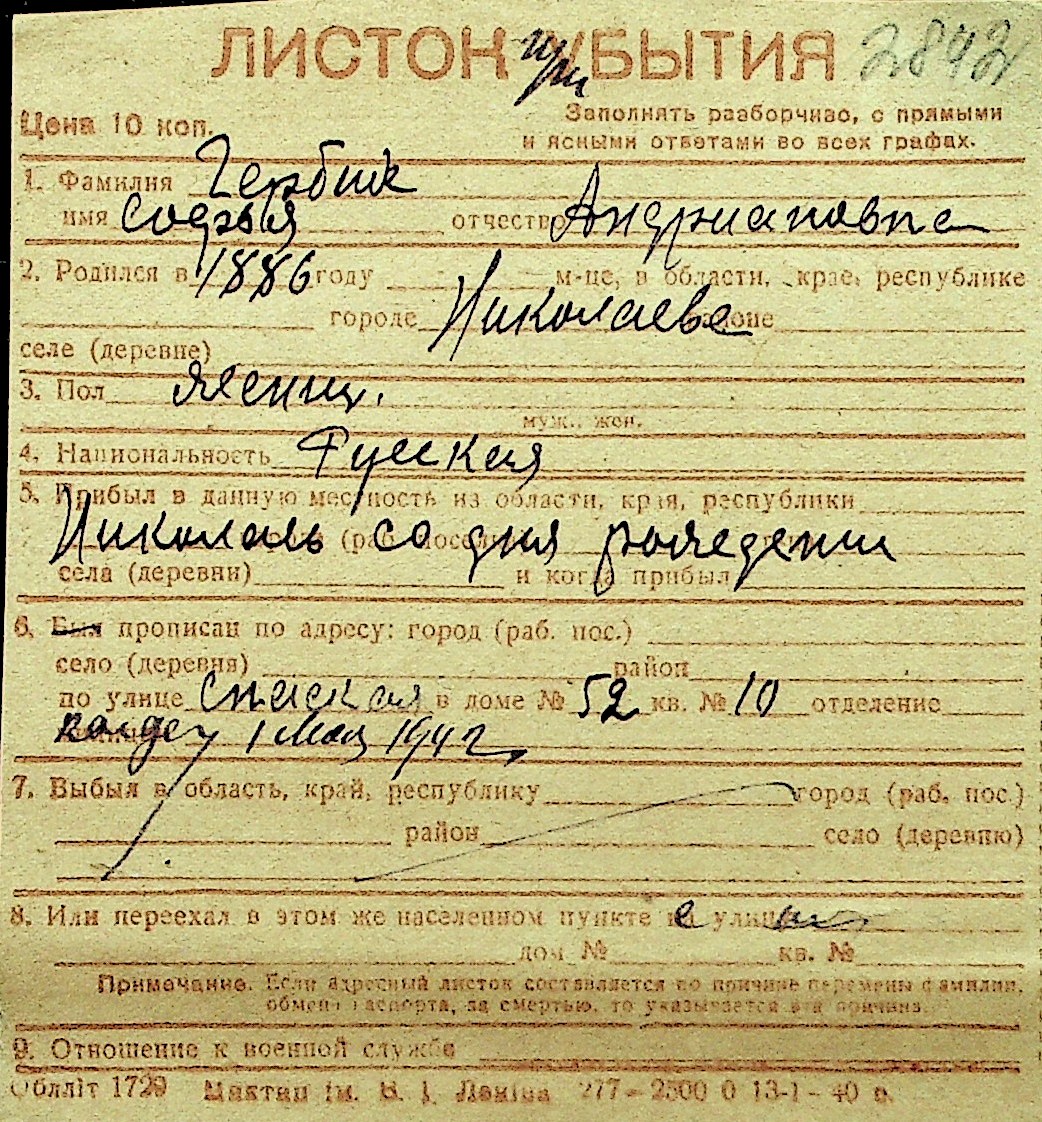 ЛИСТОК при УБЫТИЯ 2842
Цена 10 коп.
Заполнять разборчиво, с прямыми
и ясными ответами во всех графах.
1. Фамилия Гербик
имя Софья отчество Андриановна
2. Родился в 1886 году м-це, в области, крае, республике
городе Николаеве районе
селе (деревне)
3. Пол женщ.
муж., жен.
4. Национальность Русская
5. Прибыл в данную местность из области, края, республики
Николаев со дня рождения
села (деревни) и когда прибыл
6. Был прописан по адресу: город (раб. пос.)
село (деревня) район
по улице Спаская в доме № 52 кв. № 10 отделение
1 Мая 1942
7. Выбыл в область, край, республику город (раб. пос.)
район село (деревню)
8. Или переехал в этом же населенном пункте на улицу
дом № кв. №
Примечание. Если адресный листок составляется по причине перемены фамилии,
обмена паспорта, за смертью, то указывается эта причина.
9. Отношение к военной службе
Облліт 1729 ім. В. І. Леніна 277—2500 0 13-1-40 р.